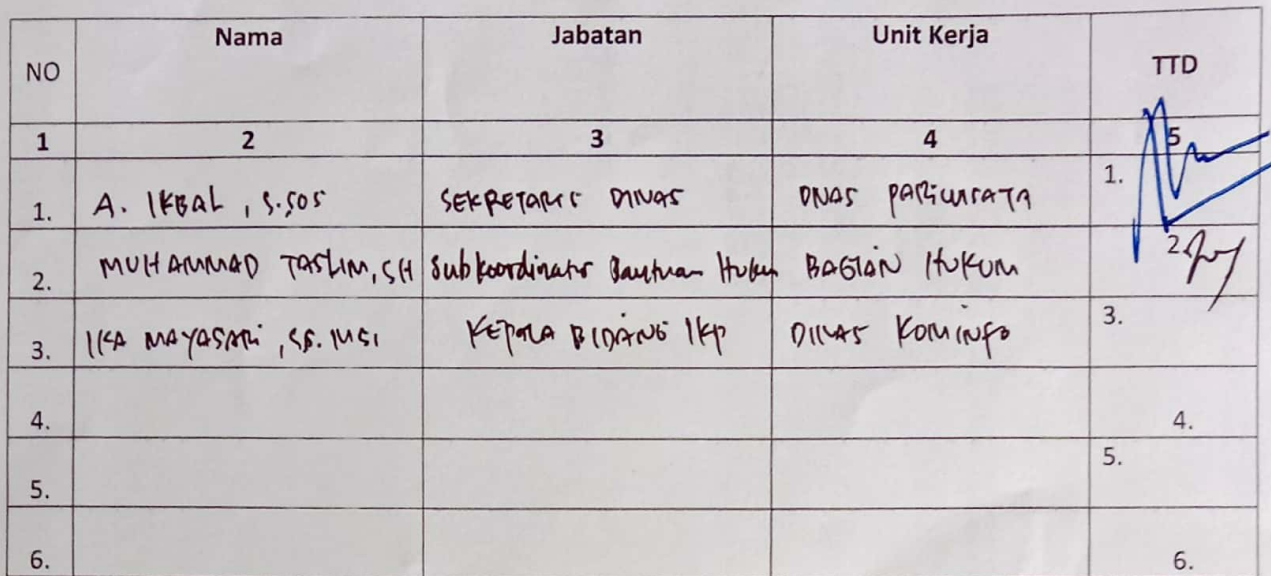 NO Nama Jabatan Unit Kerja TTD
1 2 3 4 5
1. A. IKBAL, S.SOS SEKRETARIS DINAS DINAS PARIWISATA 1.
2. MUHAMMAD TASLIM, SH Subkoordinator Bantuan Hukum BAGIAN HUKUM 2.
3. IKA MAYASARI, SE. MSI KEPALA BIDANG IKP DINAS KOMINFO 3.
4. 4.
5. 5.
6. 6.